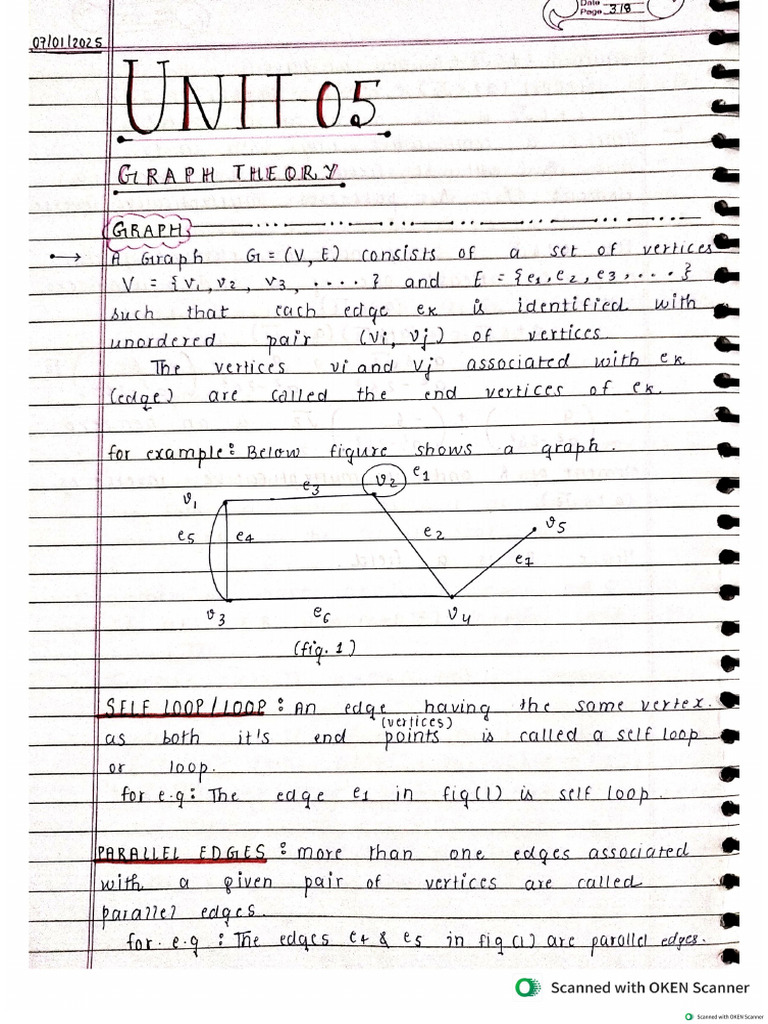 Date
Page 318
07/01/2025
UNIT-05
GRAPH THEORY
GRAPH
→ A Graph G = (V, E) consists of a set of vertices
V = {v1, v2, v3, ....} and E = {e1, e2, e3, ....}
such that each edge ek is identified with
unordered pair (vi, vj) of vertices.
The vertices vi and vj associated with ek
(edge) are called the end vertices of ek.
for example: Below figure shows a graph.
v1 e3 v2 e1
e5 e4 e2 v5
e7
v3 e6 v4
(fig. 1)
SELF LOOP/LOOP: An edge having the same vertex
as both it's end points (vertices) is called a self loop
or loop.
for e.g: The edge e1 in fig(1) is self loop.
PARALLEL EDGES: more than one edges associated
with a given pair of vertices are called
parallel edges.
for e.g: The edges e4 & e5 in fig(1) are parallel edges.
Scanned with OKEN Scanner
Scanned with OKEN Scanner